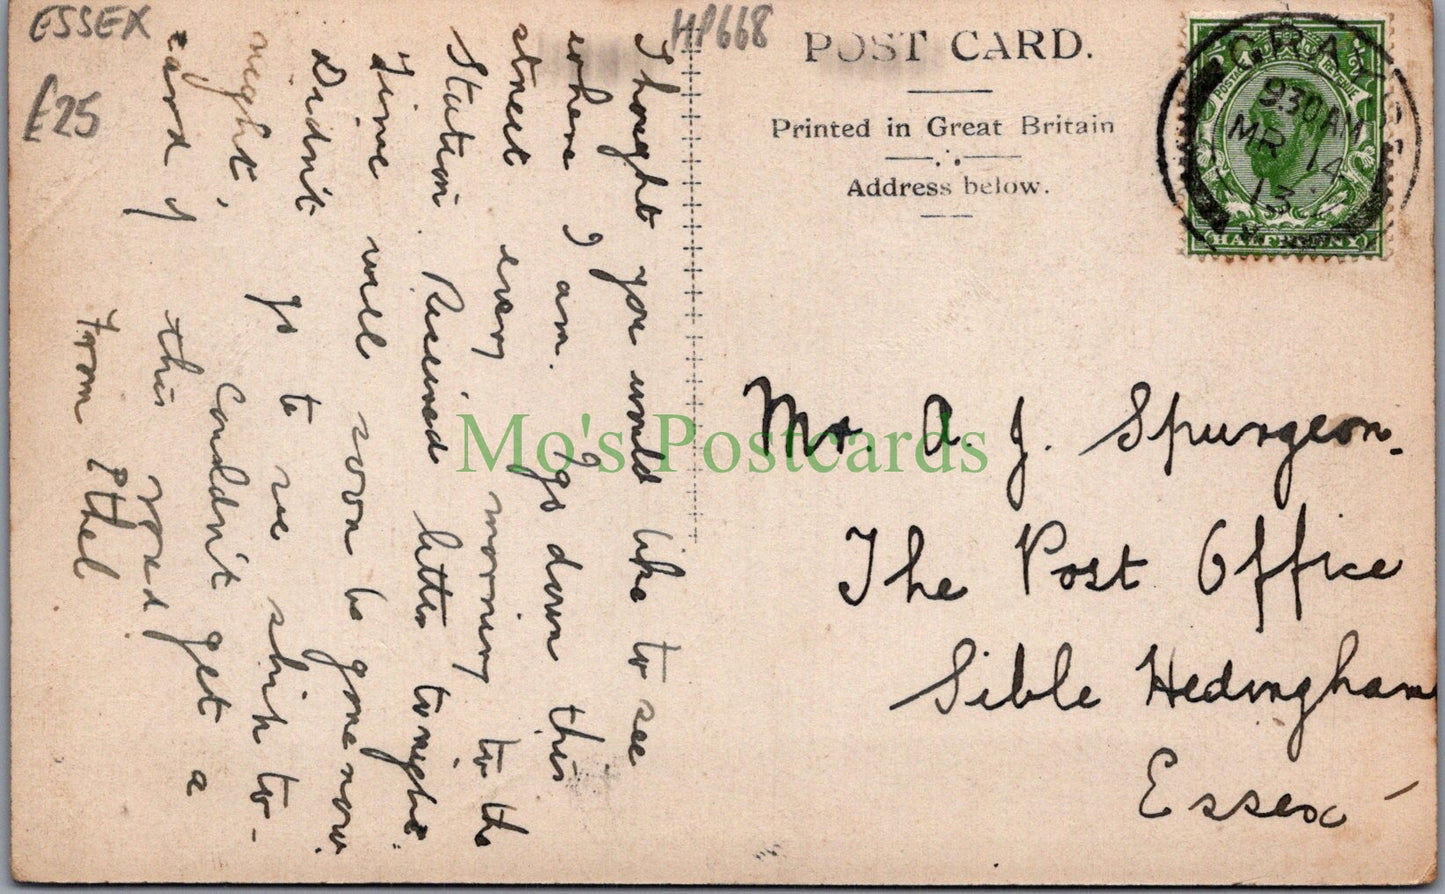 ESSEX
£25
HP668
POST CARD.
Printed in Great Britain
Address below.
POSTAL REVENUE
HALFPENNY
GRAYS
930AM
MR 14
13
I thought you would like to see
where I am. I go down this
street every morning to the
Station. Received letter tonight.
Time will soon be gone now.
Didn't go to we shirk to-
night, Couldn't get a
card of this road
From Ethel
Mr. A. J. Spurgeon.
The Post Office
Sible Hedingham
Essex
Mo's Postcards